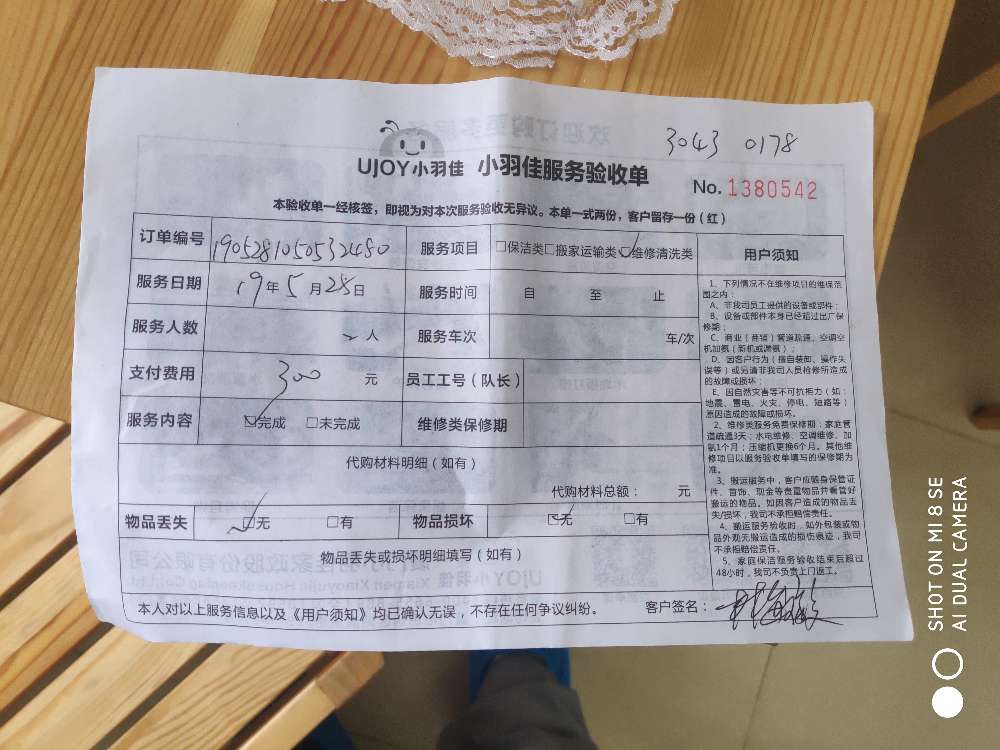 3043 0178
UJOY小羽佳 小羽佳服务验收单
No. 1380542
本验收单一经核签，即视为对本次服务验收无异议。本单一式两份，客户留存一份（红）
订单编号 1905281050532480 服务项目 □保洁类□搬家运输类☑维修清洗类
服务日期 19年5月28日 服务时间 自 至 止
服务人数 2人 服务车次 车/次
支付费用 300 元 员工工号（队长）
服务内容 ☑完成 □未完成 维修类保修期
代购材料明细（如有）
代购材料总额： 元
物品丢失 ☑无 □有 物品损坏 ☑无 □有
物品丢失或损坏明细填写（如有）
本人对以上服务信息以及《用户须知》均已确认无误，不存在任何争议纠纷。 客户签名：
用户须知
1、下列情况不在维修项目的维保范
围之内：
A、非我司员工提供的设备或部件；
B、设备或部件本身已经超过出厂保
修期；
C、商业（商铺）管道疏通、空调空
机加氨（新机或漏氨）；
D、因客户行为（擅自装卸、操作失
误等）或另请非我司人员检修所造成
的故障或损坏；
E、因自然灾害等不可抗拒力（如：
地震、雷电、火灾、停电、短路等）
原因造成的故障或损坏。
2、维修类服务免费保修期：家庭管
道疏通3天；水电维修、空调维修、加
氨1个月；压缩机更换6个月。其他维
修项目以服务验收单填写的保修期为
准。
3、搬运服务中，客户应随身保管证
件、首饰、现金等贵重物品并看管好
搬运的物品。如因客户造成的物品丢
失/损坏，我司不承担赔偿责任。
4、搬运服务验收时，如外包装或物
品外观无搬运造成的损伤痕迹，我司
不承担赔偿责任。
5、家庭保洁服务验收结束后超过
48小时，我司不负责上门返工。
SHOT ON MI 8 SE
AI DUAL CAMERA